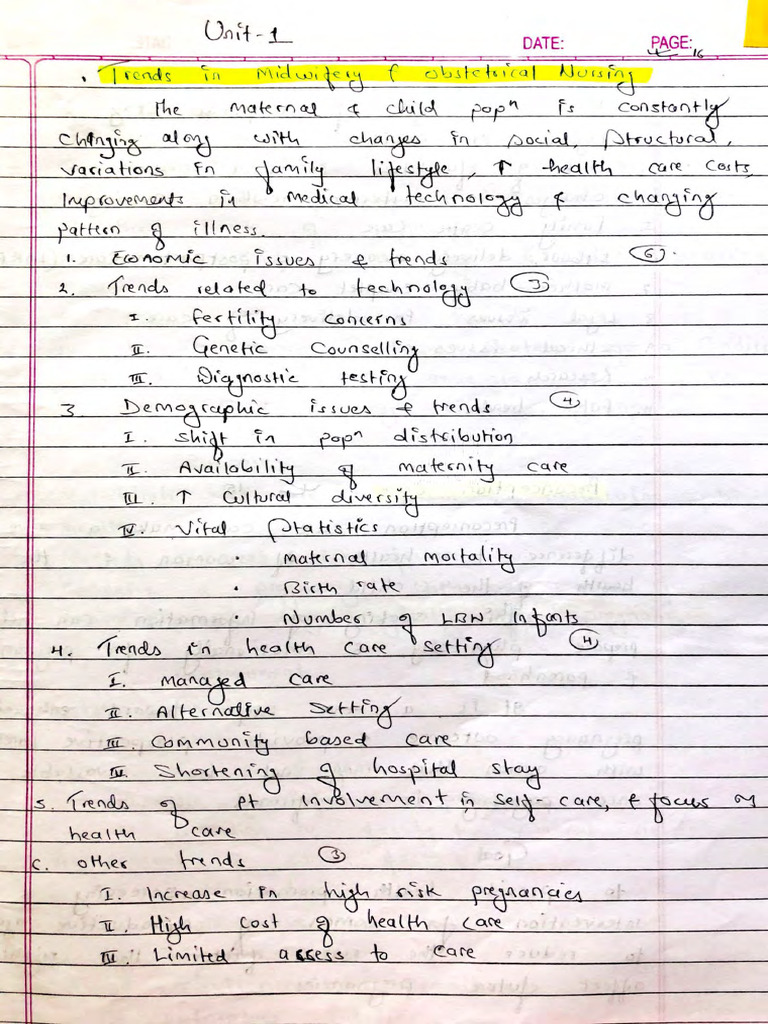 Unit-1
DATE: PAGE:
16
. Trends in Midwifery & obstetrical Nursing
The maternal & child popⁿ is constantly
changing along with changes in social, structural,
variations in family lifestyle, ↑ health care costs,
Improvements in medical technology & changing
pattern of illness.
1. Economic issues & trends ⑥.
2. Trends related to technology ③
I. fertility concerns
II. Genetic Counselling
III. Diagnostic testing
3. Demographic issues & trends ④
I. shift in popⁿ distribution
II. Availability of maternity care
III. ↑ cultural diversity
IV. Vital statistics
• maternal mortality
• Birth rate
• Number of LBW Infants
4. Trends in health care setting ④
I. managed care
II. Alternative setting
III. Community based care
IV. Shortening of hospital stay
5. Trends of pt involvement in self-care, & focus on
health care
6. other trends ③
I. Increase in high risk pregnancies
II. High cost of health care
III. Limited access to care